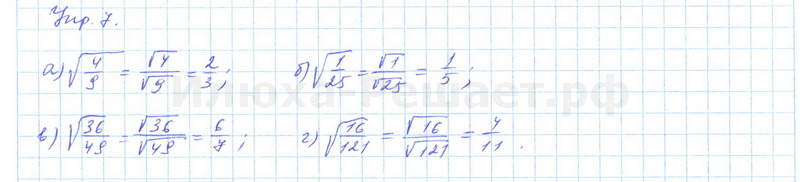 Упр. 7.
а) √4/9 = √4/√9 = 2/3; б) √1/25 = √1/√25 = 1/5;
в) √36/49 = √36/√49 = 6/7; г) √16/121 = √16/√121 = 4/11.
Илюха-Решает.рф